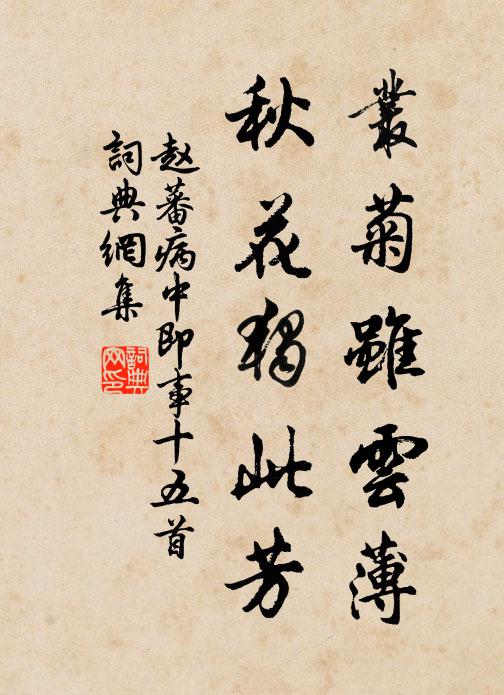 叢菊雖雲薄
秋花獨此芳
赵蕃病中即事十五首
詞典網集
詞典
网印